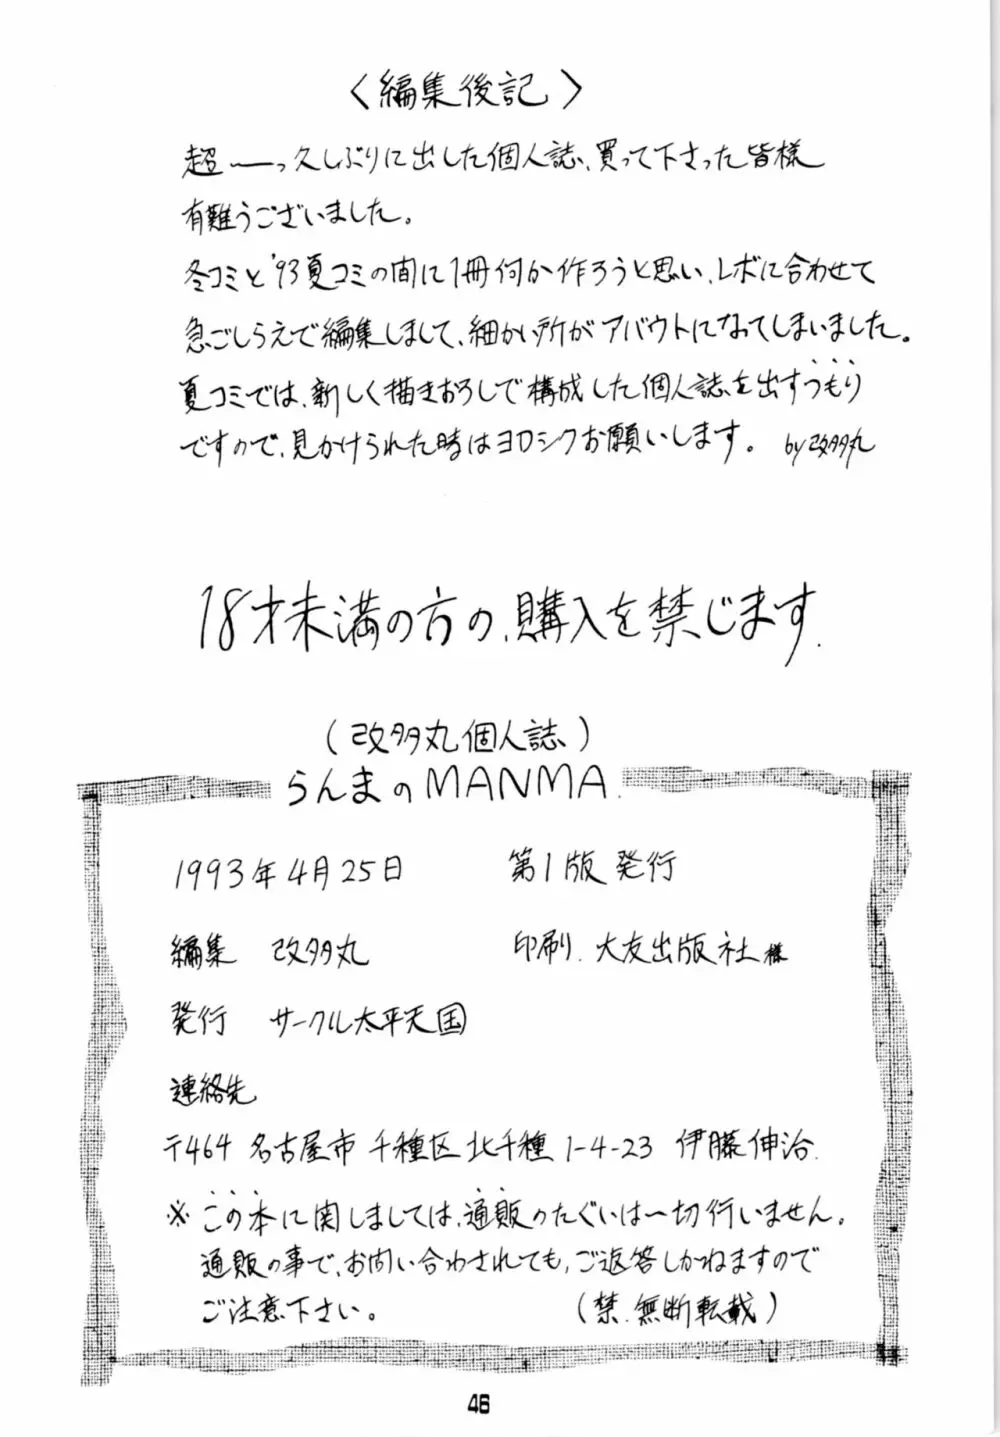 〈編集後記〉
超──っ久しぶりに出した個人誌、買って下さった皆様
有難うございました。
冬コミと'93夏コミの間に1冊何か作ろうと思い、レボに合わせて
急ごしらえで編集しまして、細かい所がアバウトになってしまいました。
夏コミでは、新しく描きおろしで構成した個人誌を出すつもり
ですので、見かけられた時はヨロシクお願いします。 by改多丸
18才未満の方の、購入を禁じます.
(改多丸個人誌)
らんまのMANMA.
1993年4月25日 第1版発行
編集 改多丸 印刷. 大友出版社様
発行 サークル太平天国
連絡先
〒464 名古屋市千種区北千種1-4-23 伊藤伸治.
※この本に関しましては、通販のたぐいは一切行いません。
通販の事で、お問い合わされても、ご返答しかねますので
ご注意下さい。 (禁.無断転載)
46